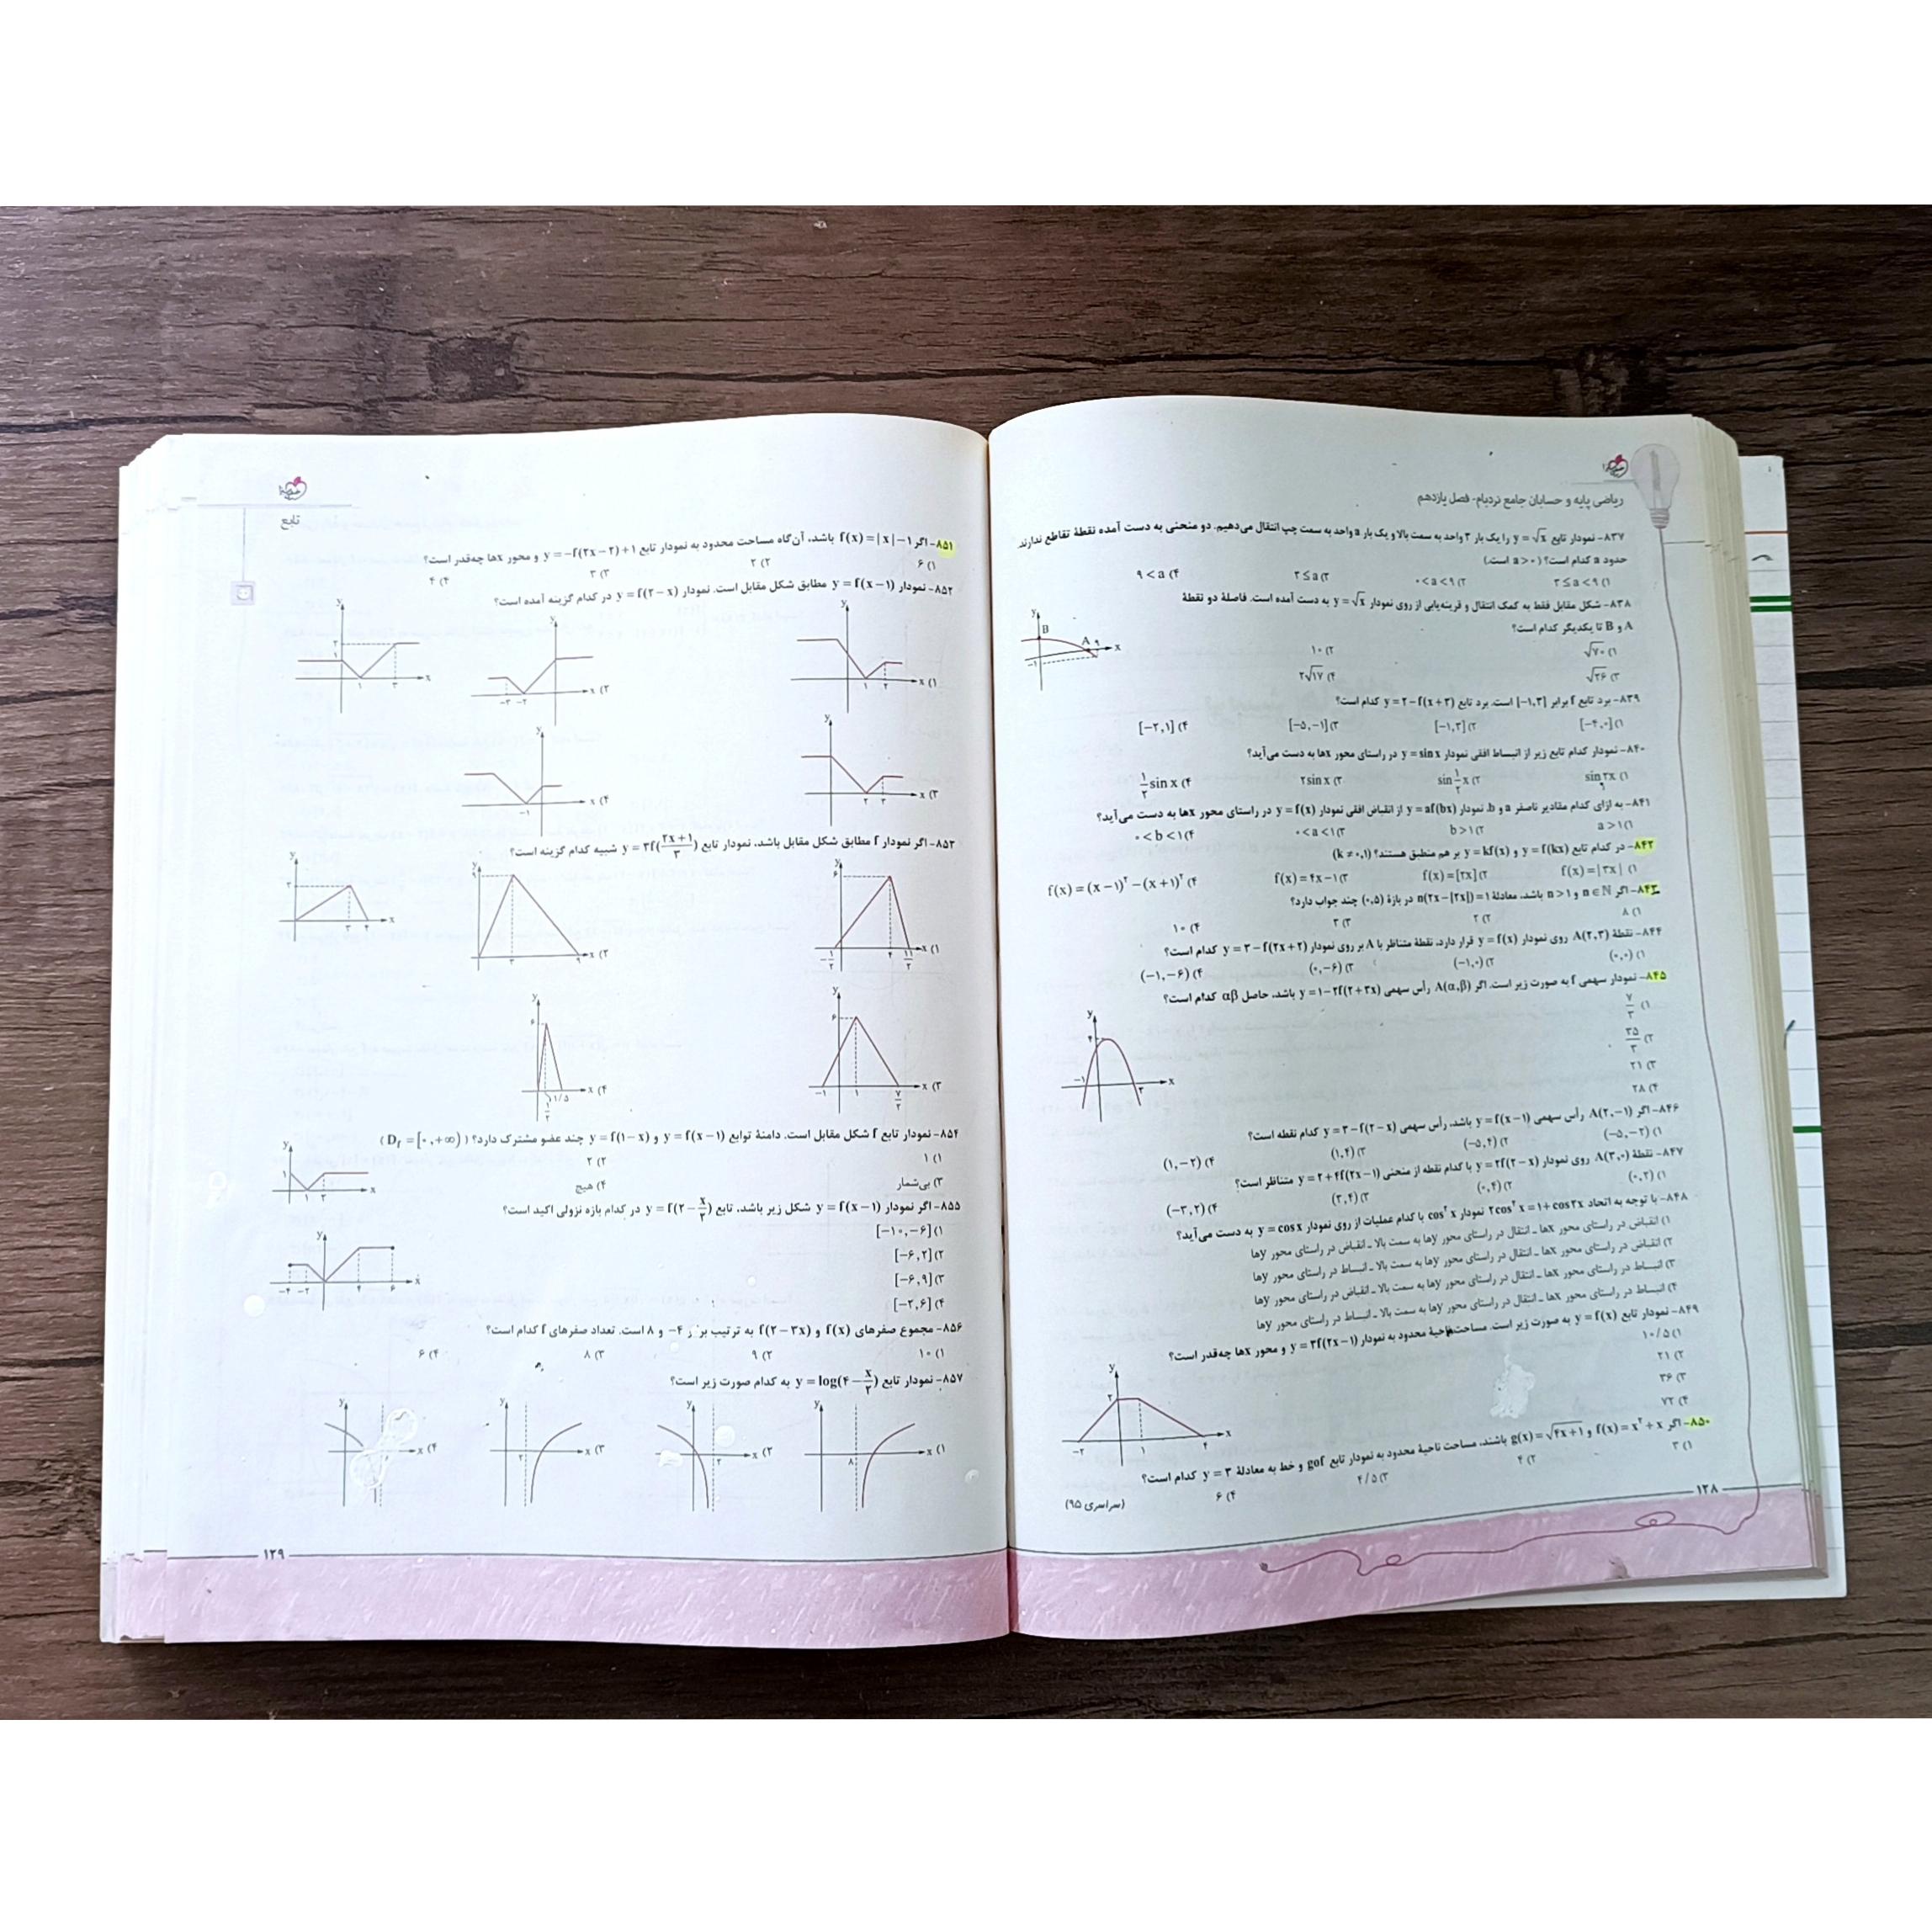 ریاضی پایه و حسابان جامع نردبام- فصل یازدهم
۸۳۷- نمودار تابع y = √x را یک بار ۳ واحد به سمت بالا و یک بار a واحد به سمت چپ انتقال می‌دهیم. دو منحنی به دست آمده نقطهٔ تقاطع ندارند.
حدود a کدام است؟ (a > ۰ است.)
۱) ۳ ≤ a < ۹ ۲) ۰ < a < ۹ ۳) ۳ ≤ a ۴) ۹ < a
۸۳۸- شکل مقابل فقط به کمک انتقال و قرینه‌یابی از روی نمودار y = √x به دست آمده است. فاصلهٔ دو نقطهٔ
A و B تا یکدیگر کدام است؟
۱) √۷۰ ۲) ۱۰
۳) √۲۶ ۴) ۲√۱۷
۸۳۹- برد تابع f برابر [−۱,۳] است. برد تابع y = ۲ − f(x + ۳) کدام است؟
۱) [−۴,۰] ۲) [−۱,۳] ۳) [−۵,−۱] ۴) [−۳,۱]
۸۴۰- نمودار کدام تابع زیر از انبساط افقی نمودار y = sin x در راستای محور xها به دست می‌آید؟
۱) sin ۲x ۲) sin ۱/۲ x ۳) ۲ sin x ۴) ۱/۲ sin x
۸۴۱- به ازای کدام مقادیر ناصفر a و b، نمودار y = af(bx) از انقباض افقی نمودار y = f(x) در راستای محور xها به دست می‌آید؟
۱) a > ۱ ۲) b > ۱ ۳) ۰ < a < ۱ ۴) ۰ < b < ۱
۸۴۲- در کدام تابع y = f(kx) و y = kf(x) بر هم منطبق هستند؟ (k ≠ ۰,۱)
۱) f(x) = |۳x| ۲) f(x) = [۲x] ۳) f(x) = ۴x − ۱ ۴) f(x) = (x − ۱)² − (x + ۱)²
۸۴۳- اگر n ∈ ℕ و n > ۱ باشد، معادلهٔ n(۲x − [۲x]) = ۱ در بازهٔ (۰,۵) چند جواب دارد؟
۱) ۸ ۲) ۲ ۳) ۳ ۴) ۱۰
۸۴۴- نقطهٔ A(۲,۳) روی نمودار y = f(x) قرار دارد، نقطهٔ متناظر با A بر روی نمودار y = ۳ − f(۲x + ۲) کدام است؟
۱) (۰,۰) ۲) (−۱,۰) ۳) (۰,−۶) ۴) (−۱,−۶)
۸۴۵- نمودار سهمی f به صورت زیر است. اگر A(α,β) رأس سهمی y = ۱ − ۲f(۲ + ۳x) باشد، حاصل αβ کدام است؟
۱) ۷/۳
۲) ۳۵/۳
۳) ۲۱
۴) ۲۸
۸۴۶- اگر A(۲,−۱) رأس سهمی y = f(x − ۱) باشد، رأس سهمی y = ۳ − f(۲ − x) کدام نقطه است؟
۱) (−۵,−۲) ۲) (−۵,۴) ۳) (۱,۴) ۴) (۱,−۲)
۸۴۷- نقطهٔ A(۳,۰) روی نمودار y = ۲f(۲ − x) با کدام نقطه از منحنی y = ۲ + ۴f(۲x − ۱) متناظر است؟
۱) (۰,۲) ۲) (۰,۴) ۳) (۳,۴) ۴) (−۳,۲)
۸۴۸- با توجه به اتحاد ۲cos²x = ۱ + cos ۲x نمودار cos²x با کدام عملیات از روی نمودار y = cos x به دست می‌آید؟
۱) انقباض در راستای محور xها ـ انتقال در راستای محور yها به سمت بالا ـ انقباض در راستای محور yها
۲) انقباض در راستای محور xها ـ انتقال در راستای محور yها به سمت بالا ـ انبساط در راستای محور yها
۳) انبساط در راستای محور xها ـ انتقال در راستای محور yها به سمت بالا ـ انقباض در راستای محور yها
۴) انبساط در راستای محور xها ـ انتقال در راستای محور yها به سمت بالا ـ انبساط در راستای محور yها
۸۴۹- نمودار تابع y = f(x) به صورت زیر است. مساحت ناحیهٔ محدود به نمودار y = ۳f(۲x − ۱) و محور xها چه‌قدر است؟
۱) ۱۰/۵
۲) ۲۱
۳) ۳۶
۴) ۷۲
۸۵۰- اگر f(x) = x² + x و g(x) = √(۴x + ۱) باشند، مساحت ناحیهٔ محدود به نمودار تابع gof و خط به معادلهٔ y = ۳ کدام است؟
۱) ۳ ۲) ۴ ۳) ۴/۵ ۴) ۶
(سراسری ۹۵)
۱۲۸
تابع
۸۵۱- اگر f(x) = |x| − ۱ باشد، آن‌گاه مساحت محدود به نمودار تابع y = −f(۲x − ۲) + ۱ و محور xها چه‌قدر است؟
۱) ۶ ۲) ۲ ۳) ۳ ۴) ۴
۸۵۲- نمودار y = f(x − ۱) مطابق شکل مقابل است. نمودار y = f(۲ − x) در کدام گزینه آمده است؟
۸۵۳- اگر نمودار f مطابق شکل مقابل باشد، نمودار تابع y = ۳f((۲x + ۱)/۳) شبیه کدام گزینه است؟
۸۵۴- نمودار تابع f شکل مقابل است. دامنهٔ توابع y = f(x − ۱) و y = f(۱ − x) چند عضو مشترک دارد؟ (D_f = [۰,+∞))
۱) ۱ ۲) ۲
۳) بی‌شمار ۴) هیچ
۸۵۵- اگر نمودار y = f(x − ۱) شکل زیر باشد، تابع y = f(۲ − x/۲) در کدام بازه نزولی اکید است؟
۱) [−۱۰,−۶]
۲) [−۶,۲]
۳) [−۶,۹]
۴) [−۲,۶]
۸۵۶- مجموع صفرهای f(x) و f(۲ − ۳x) به ترتیب برابر ۴− و ۸ است. تعداد صفرهای f کدام است؟
۱) ۱۰ ۲) ۹ ۳) ۸ ۴) ۶
۸۵۷- نمودار تابع y = log(۴ − x/۲) به کدام صورت زیر است؟
۱۲۹